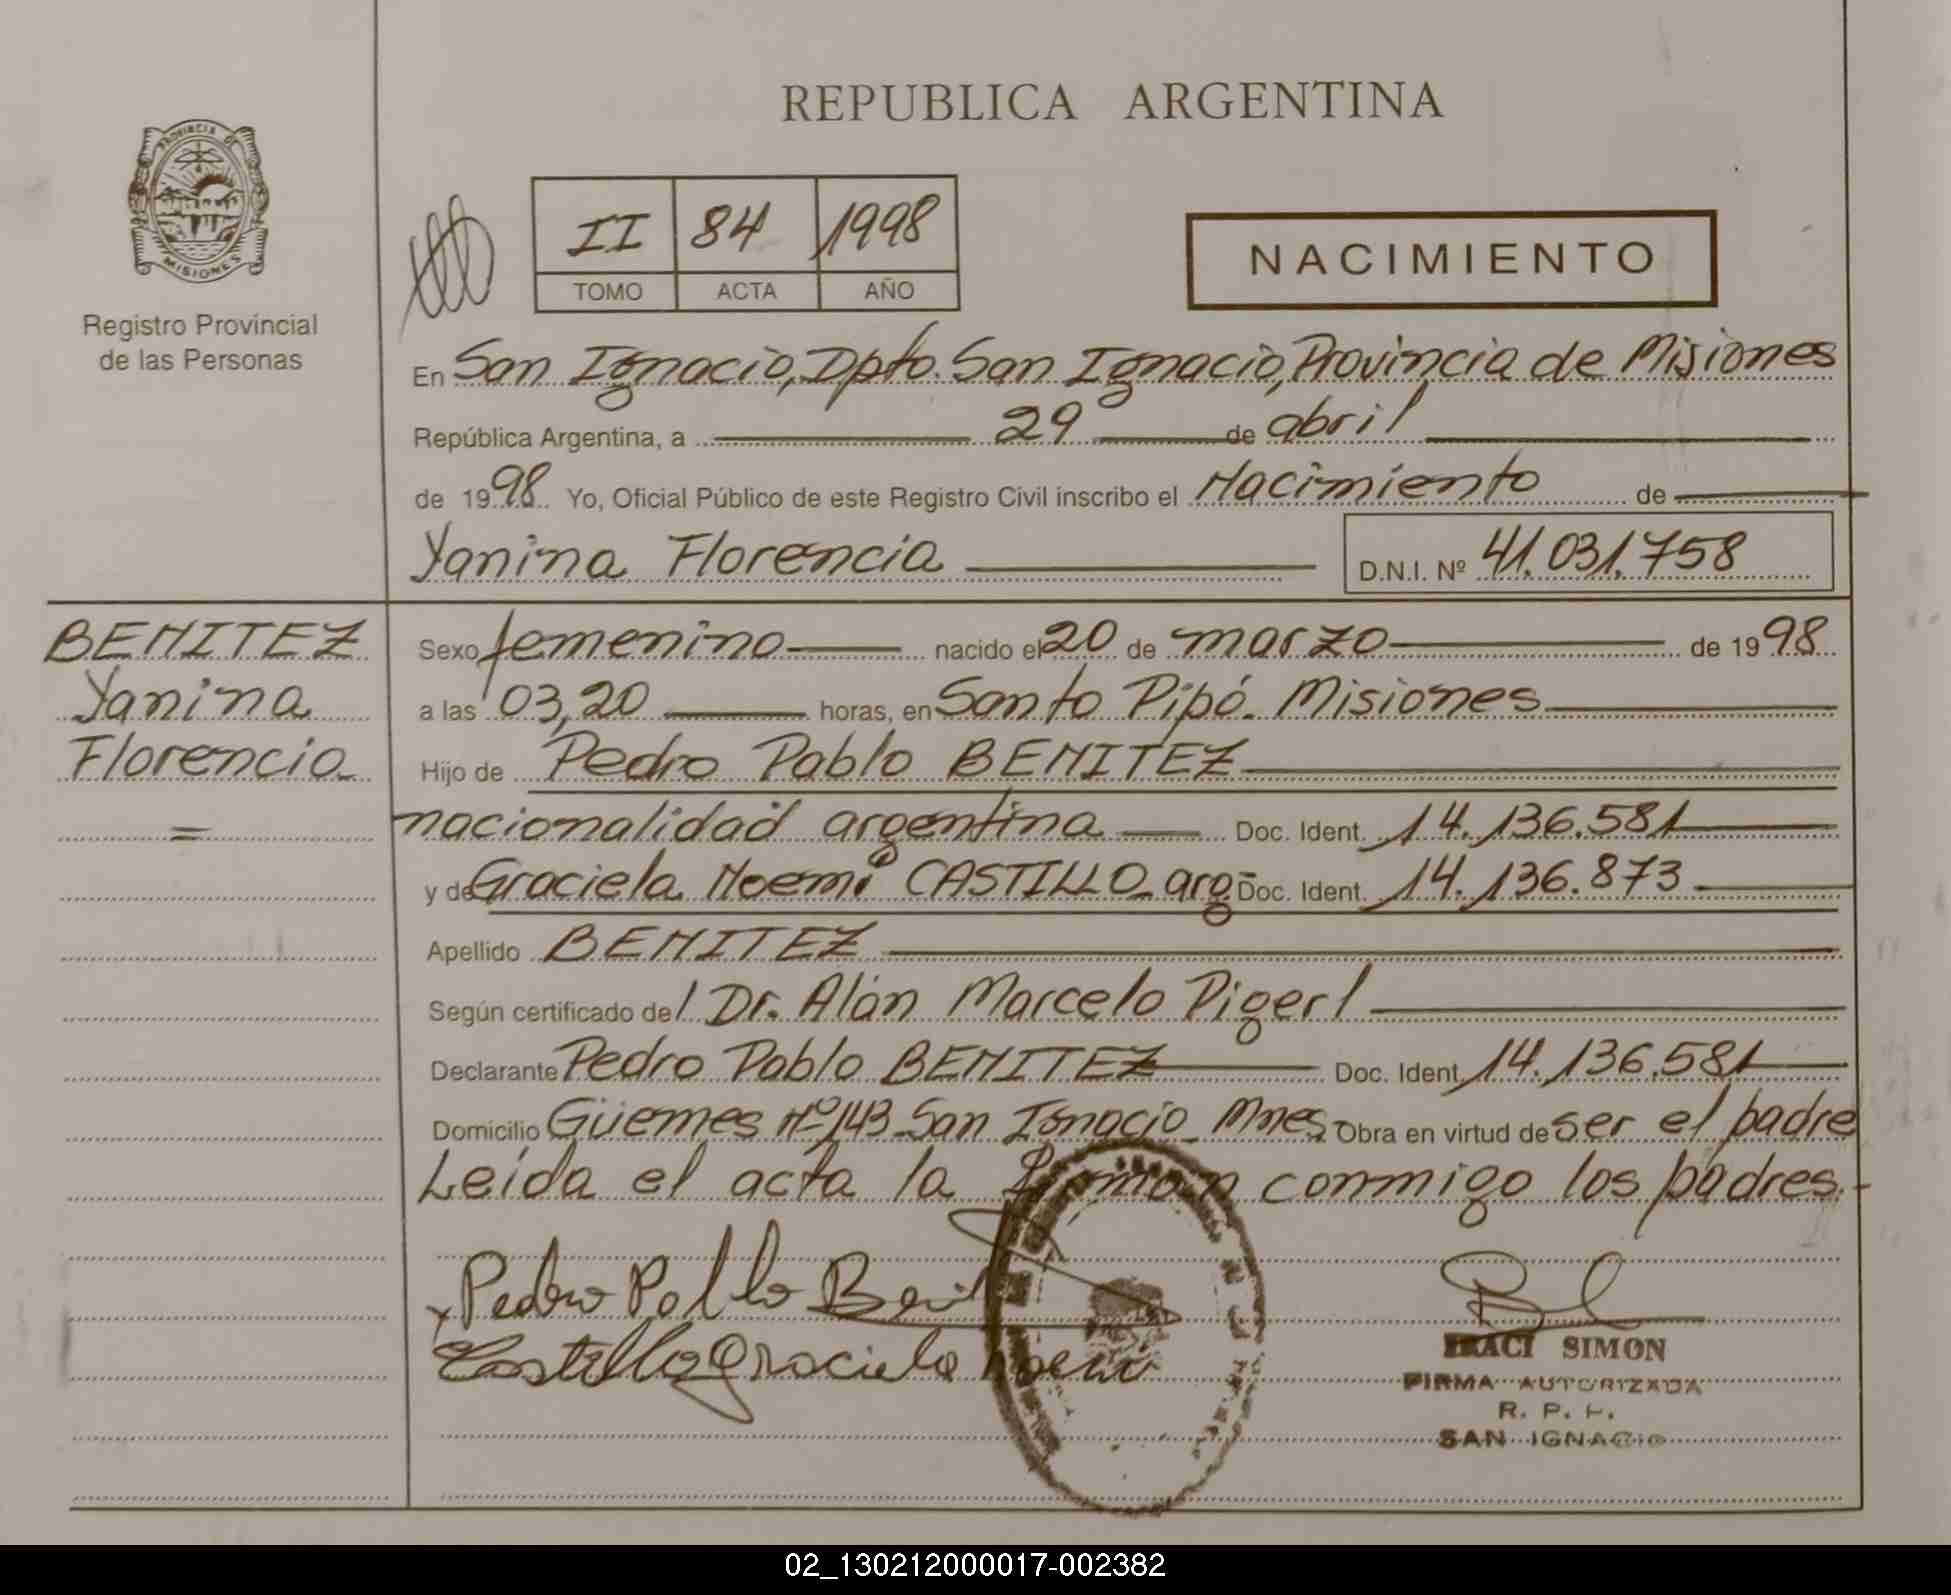 REPUBLICA ARGENTINA
PROVINCIA DE
MISIONES
Registro Provincial
de las Personas
II 84 1998
TOMO ACTA AÑO
NACIMIENTO
En San Ignacio, Dpto. San Ignacio, Provincia de Misiones
República Argentina, a 29 de abril
de 1998 Yo, Oficial Público de este Registro Civil inscribo el Nacimiento de
Yanina Florencia D.N.I. Nº 41.031.758
BENITEZ
Yanina
Florencia
=
Sexo femenino nacido el 20 de marzo de 1998
a las 03,20 horas, en Santo Pipó. Misiones
Hijo de Pedro Pablo BENITEZ
nacionalidad argentina Doc. Ident. 14.136.581
y de Graciela Noemí CASTILLO arg. Doc. Ident. 14.136.873
Apellido BENITEZ
Según certificado del Dr. Alán Marcelo Pigerl
Declarante Pedro Pablo BENITEZ Doc. Ident. 14.136.581
Domicilio Güemes Nº 143 San Ignacio Mnes. Obra en virtud de ser el padre
Leída el acta la firman conmigo los padres.
Pedro Pablo Benit
Castillo Graciela Noemi
IRACI SIMON
FIRMA AUTORIZADA
R. P. P.
SAN IGNACIO
02_130212000017-002382